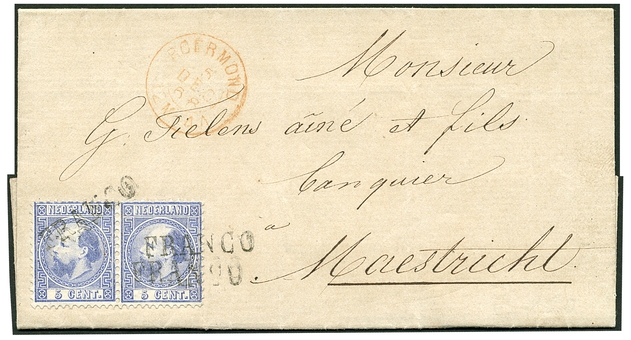 ROERMOND
Monsieur
G. Tielens aîné et fils
Banquier
à
Maestricht.
FRANCO
NEDERLAND NEDERLAND
FRANCO
FRANCO
5 CENT. 5 CENT.